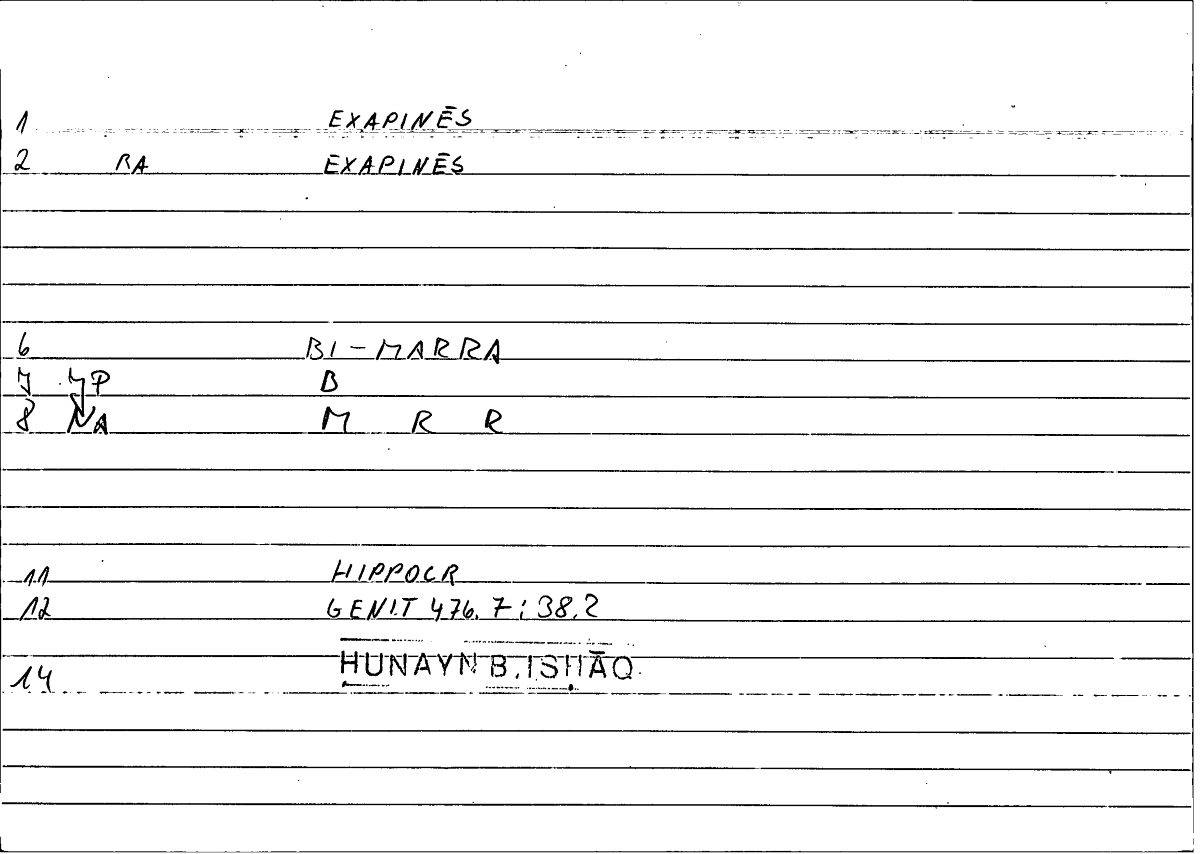 1 EXAPINĒS
2 RA EXAPINĒS
6 BI-MARRA
7 YP B
8 NA M R R
11 HIPPOCR
12 GENIT 476.7; 38.2
14 ḤUNAYN B. ISḤĀQ